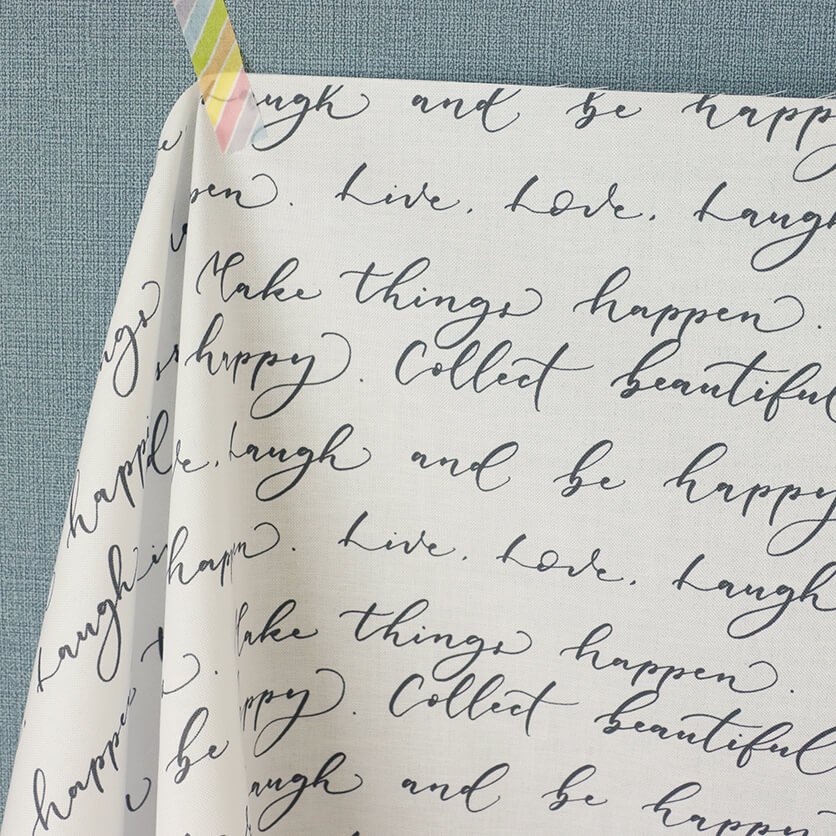 augh and be happy
pen. Live. Love. Laugh
Make things happen.
happy. Collect beautiful
Laugh and be happy
happen. Live. Love. Laugh
Make things happen.
happy. Collect beautiful
Laugh and be happy
ngs
happi
Laugh
happe
be